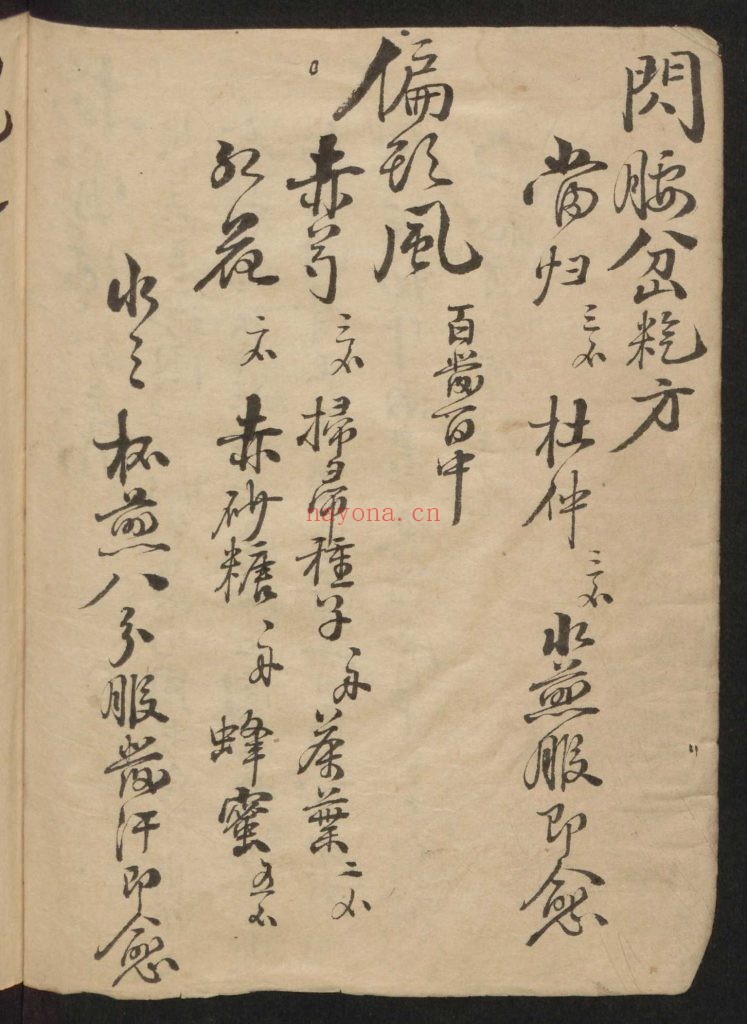 閃腰岔䊊方
當归三钱 杜仲三钱 水煎服即愈
偏頭風 百發百中
赤芍三钱 掃帚種子一两 茶葉二钱
红花一钱 赤砂糖一两 蜂蜜五钱
水三杯煎八分服發汗即愈
nayona.cn